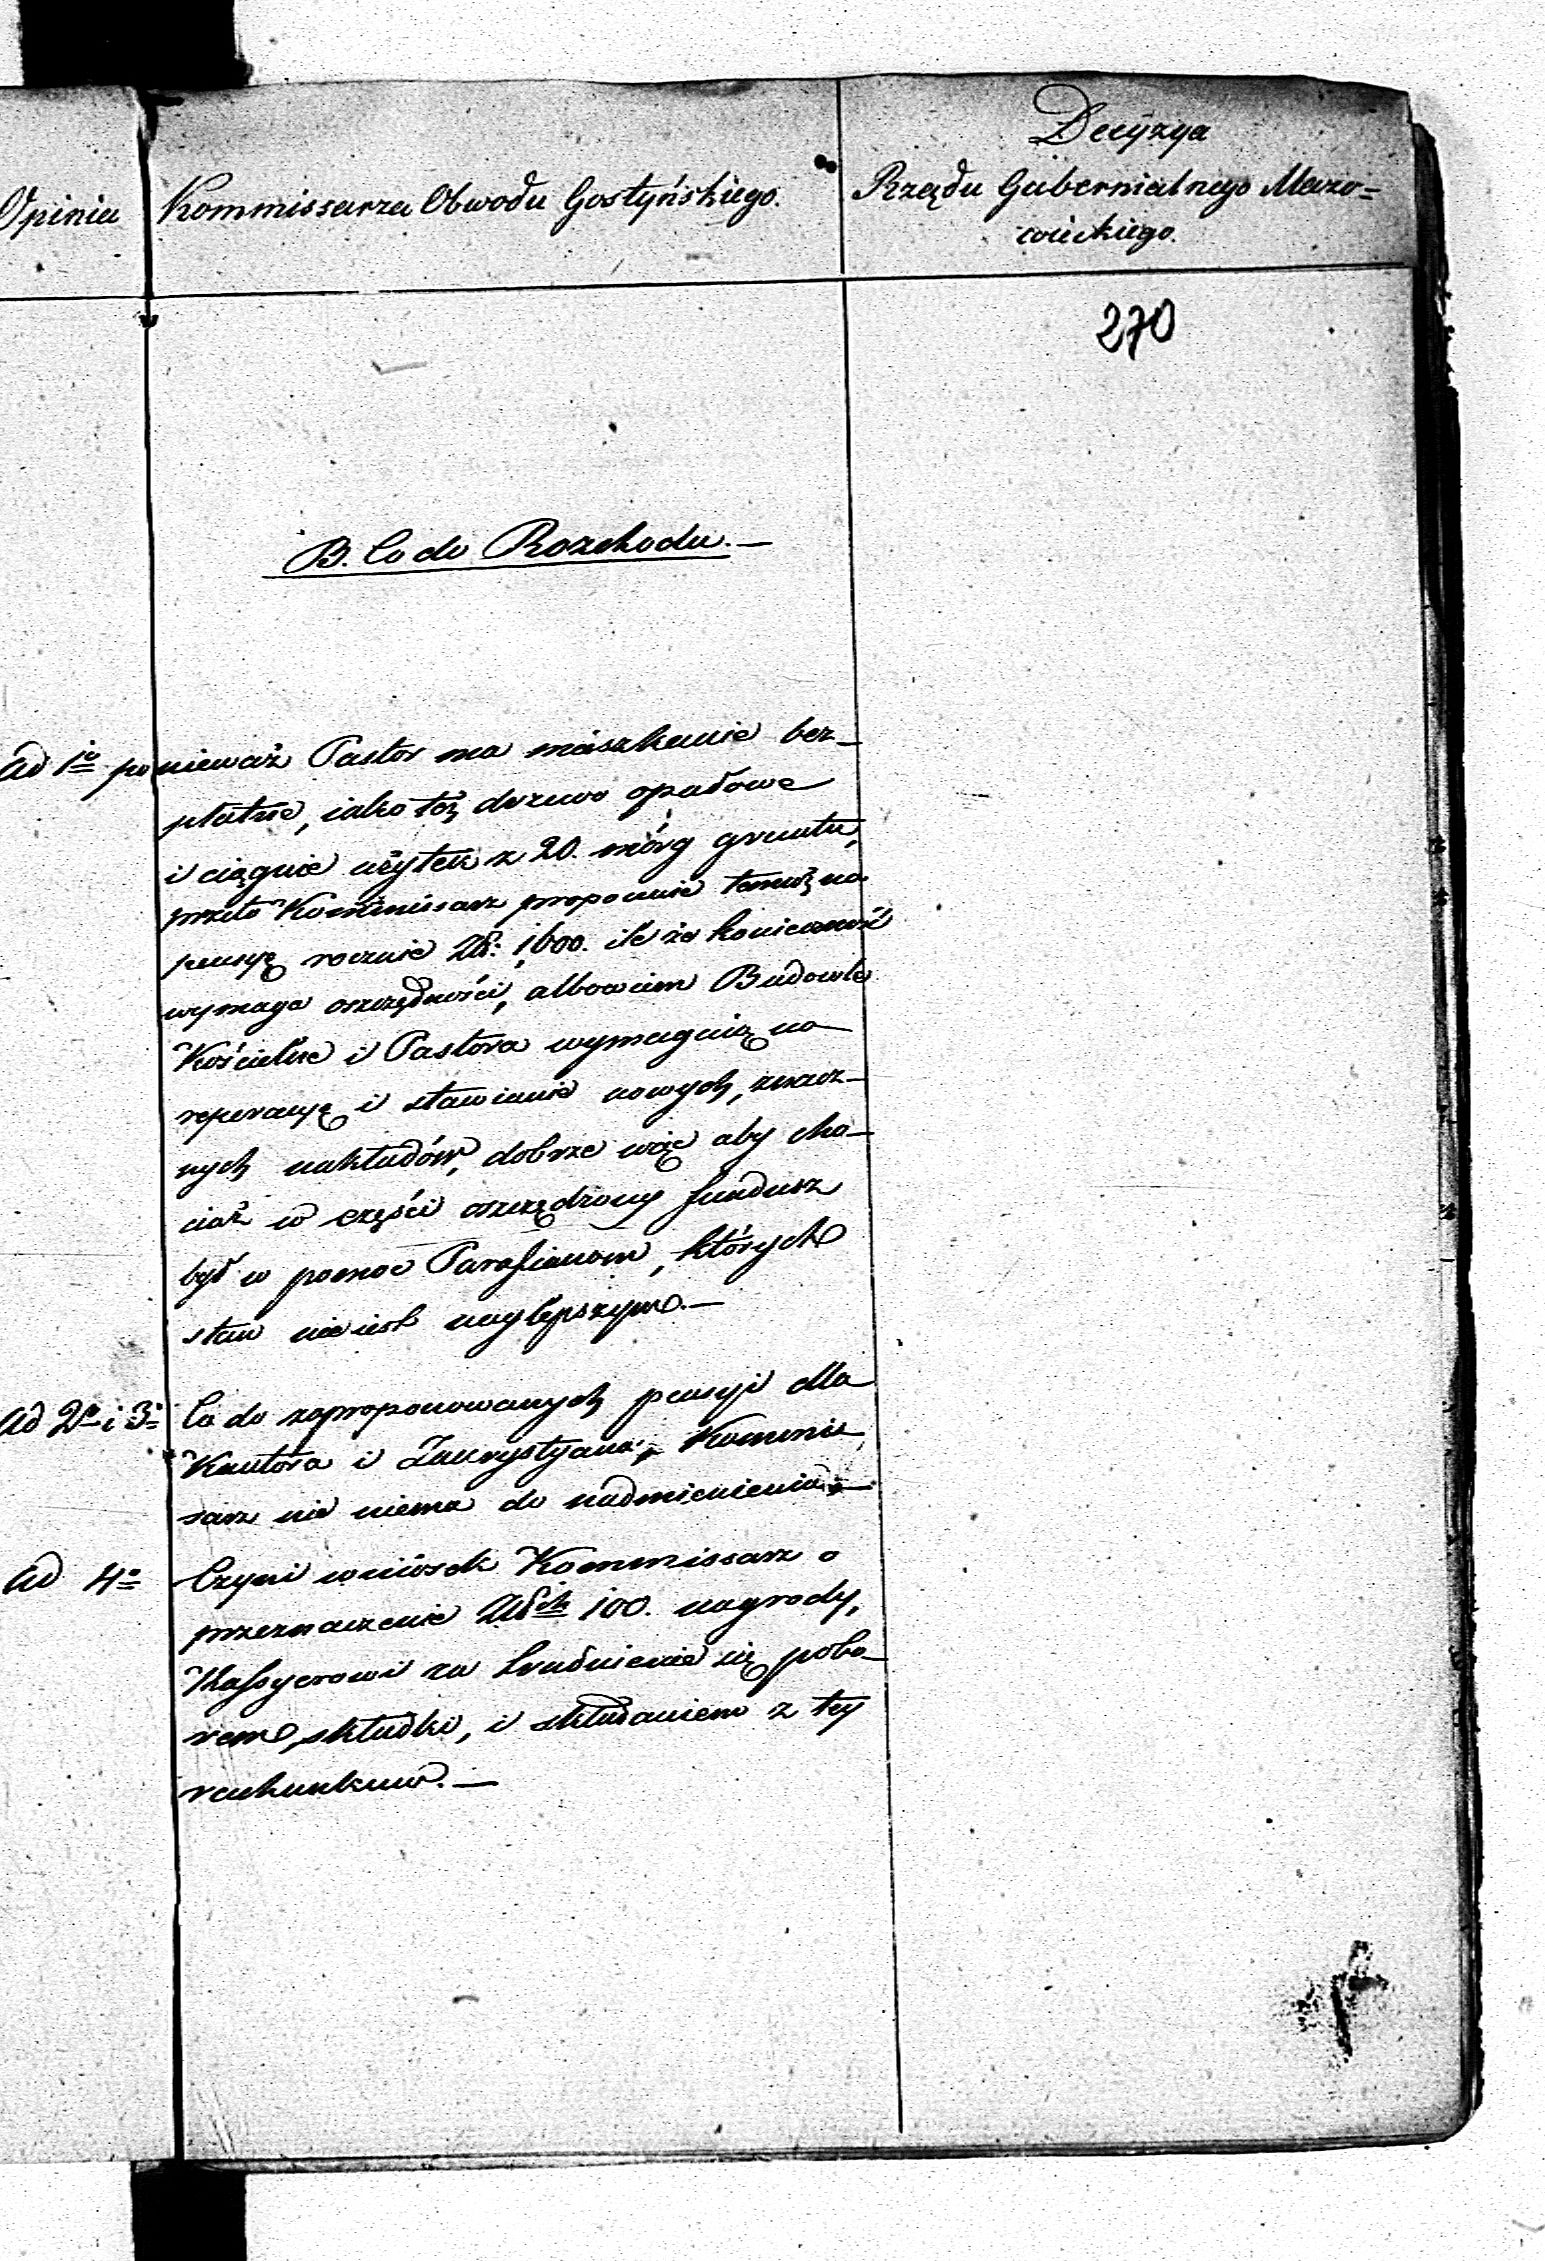 Decyzya
Opinia Kommissarza Obwodu Gostyńskiego.
Rządu Gubernialnego Mazo-
wieckiego.
270
B. Co do Rozchodu. —
Ad 1o ponieważ Pastor ma mieszkanie bez-
płatne, iako też drzewo opałowe
i ciągnie użytek z 20. mórg gruntu,
przeto Kommissarz proponuie temuż na
pensyę rocznie Zł: 1600. ile że konieczność
wymaga oszczędności, albowiem Budowle
Kościelne i Pastora wymagaią na
reperacyę i stawianie nowych, znacz-
nych nakładów, dobrze więc aby cho-
ciaż w części oszczędzony fundusz
był w pomoc Parafianom, których
stan nie iest naylepszym. —
Ad 2o i 3o Co do zaproponowanych pensyi dla
Kantora i Zakrystyana, Kommis
sarz nic niema do nadmienienia. —
Ad 4o Czyni wniosek Kommissarz o
przeznaczenie Zł 100. nagrody,
Kassyerowi za trudnienie się pobo-
rem składki, i składaniem z tey
rachunków. —